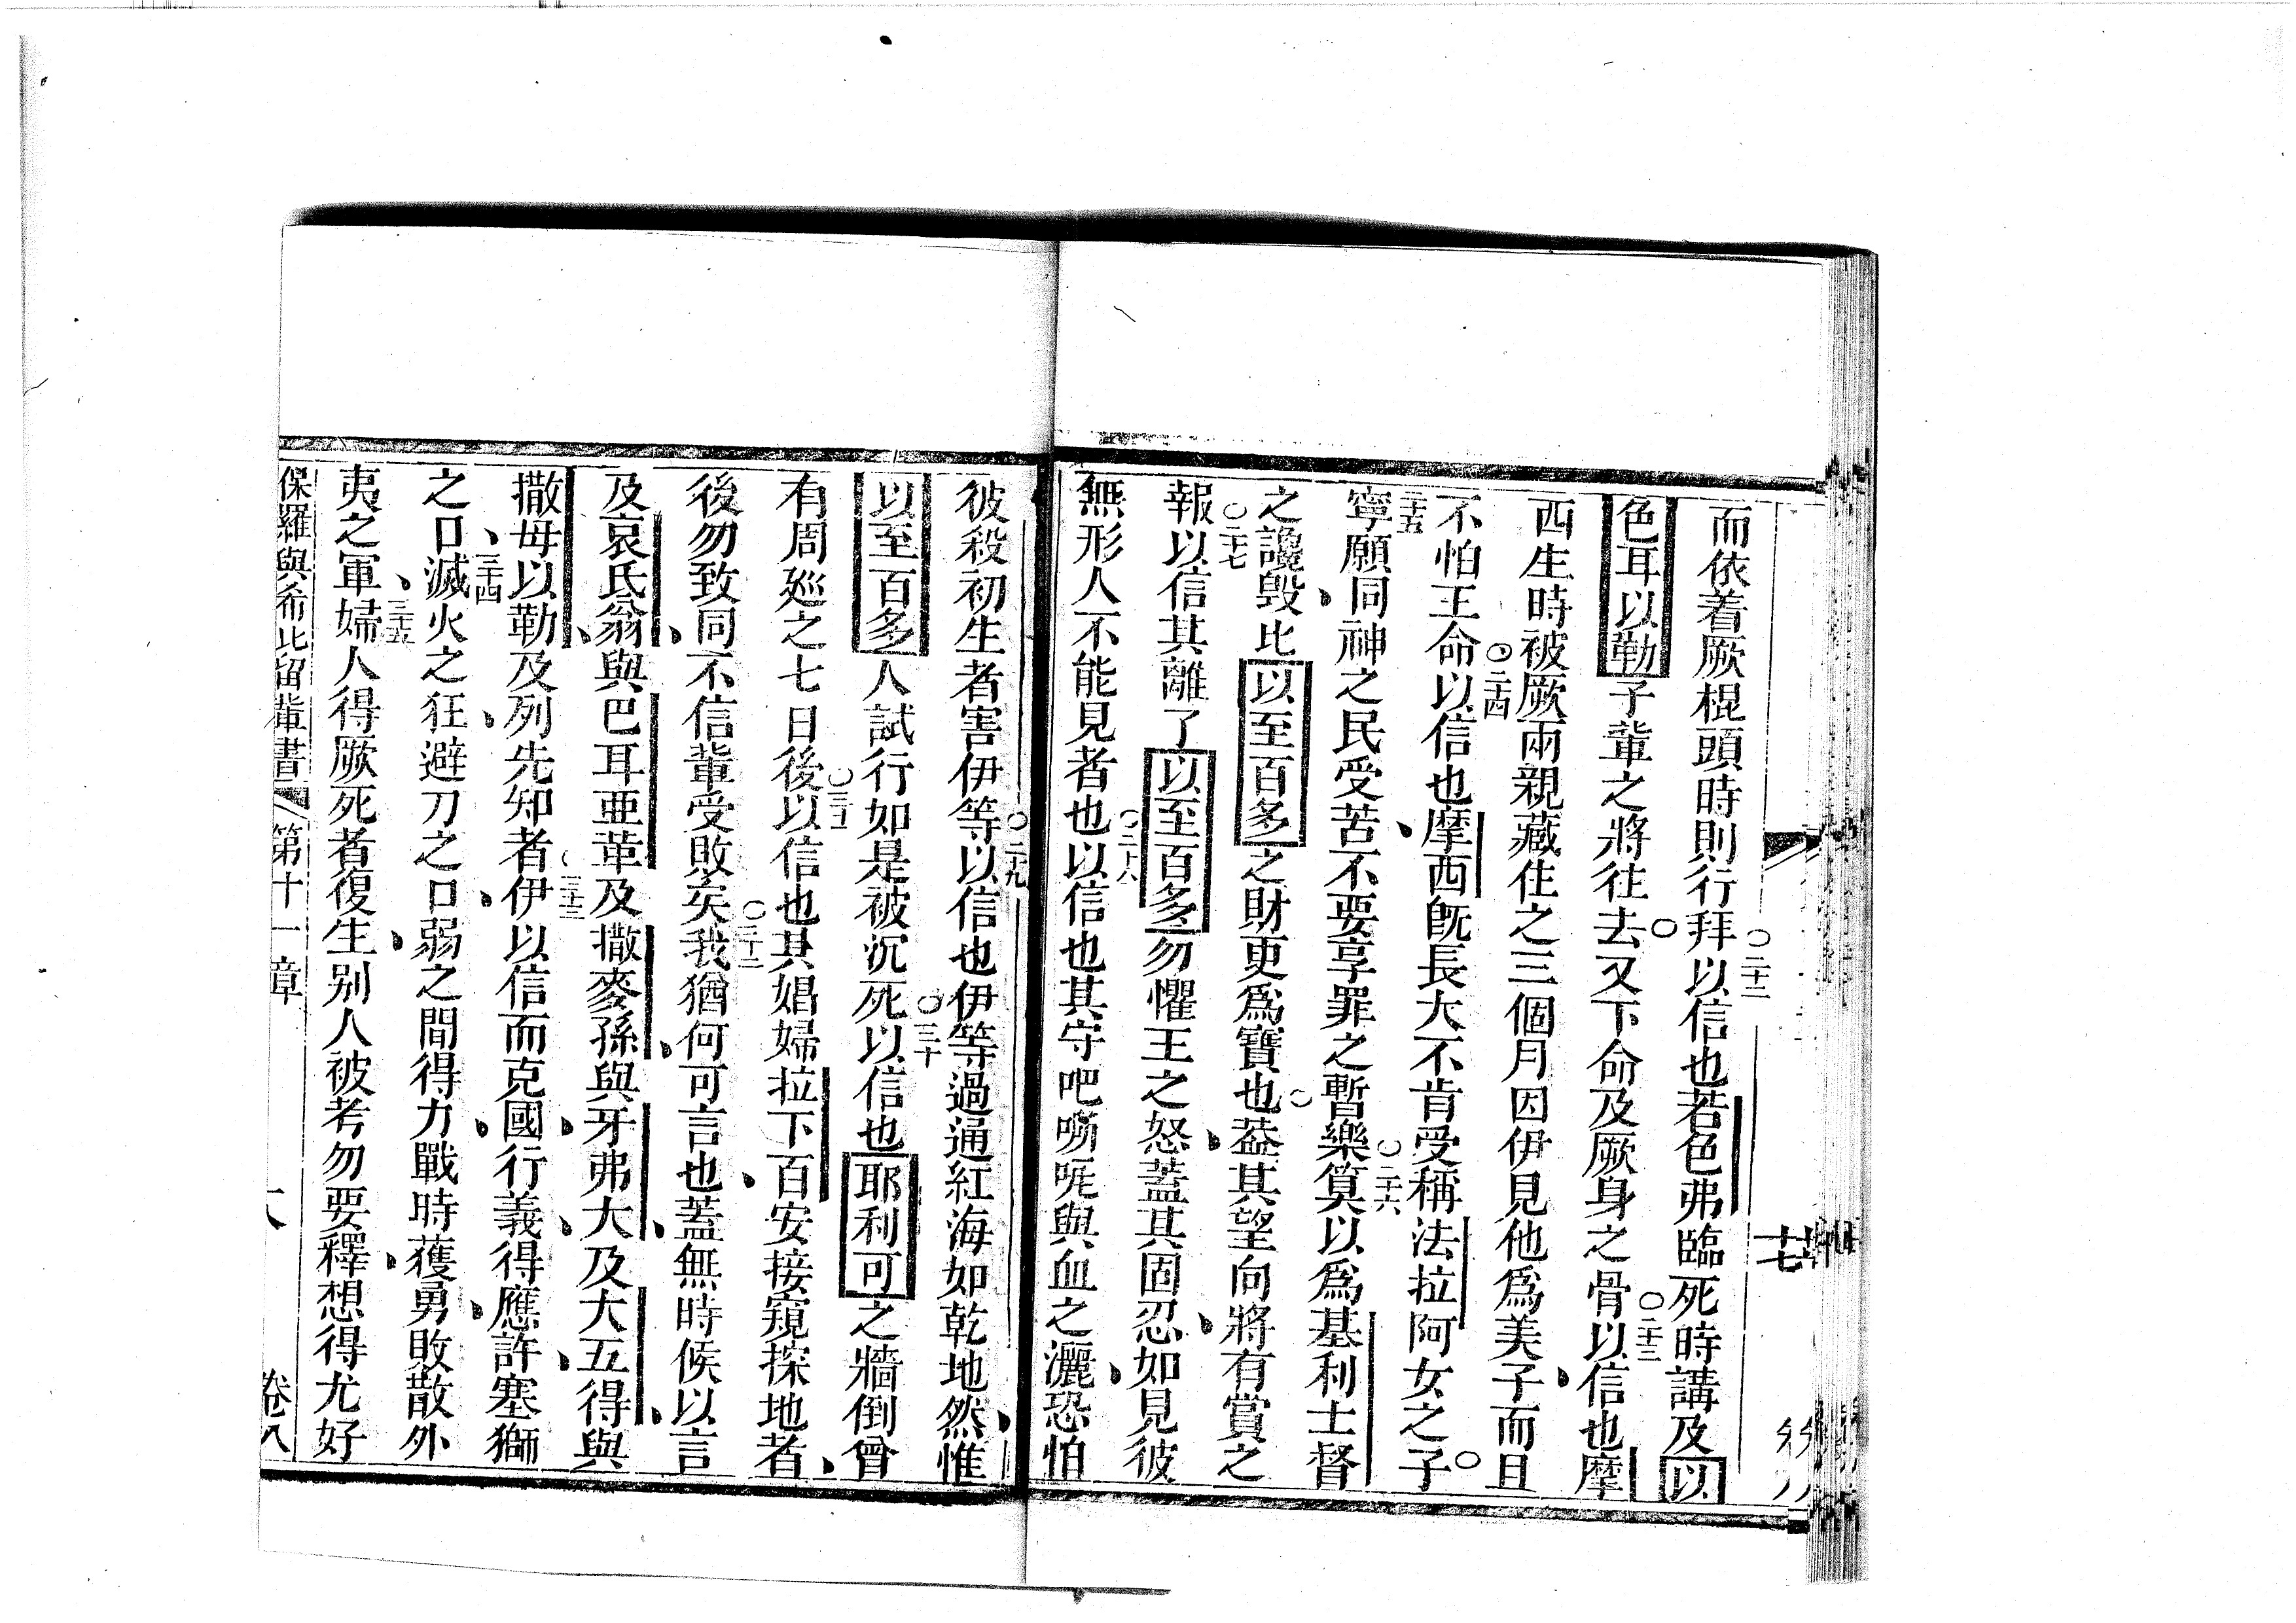 而依着厥棍頭時則行拜○二十二以信也若色弗臨死時講及以
色耳以勒子輩之將往去又下命及厥身之骨○二十三以信也摩
西生時被厥兩親藏住之三個月因伊見他為美子而且
不怕王命○二十四以信也摩西既長大不肯受稱法拉阿女之子
二十五寧願同神之民受苦不要享罪之暫樂○二十六算以為基利士督
之讒毀比以至百多之財更為寶也蓋其望向將有賞之
報○二十七以信其離了以至百多勿懼王之怒蓋其固忍如見彼
無形人不能見者也○二十八以信也其守吧𠵽呢與血之灑恐怕
彼殺初生者害伊等○二十九以信也伊等過通紅海如乾地然惟
以至百多人試行如是被沉死○三十以信也耶利可之牆倒曾
有周廵之七日後○三十一以信也其娼婦拉下百安接窺探地者
後勿致同不信輩受敗矣○三十二我猶何可言也蓋無時候以言
及哀氏翁與巴耳亞革及撒麥孫與牙弗大及大五得與
撒母以勒及列先知者○三十三伊以信而克國行義得應許塞獅
之口三十四滅火之狂避刀之口弱之間得力戰時獲勇敗散外
夷之軍三十五婦人得厥死者復生别人被考勿要釋想得尤好
保羅與希比留輩書 第十一章 卷八